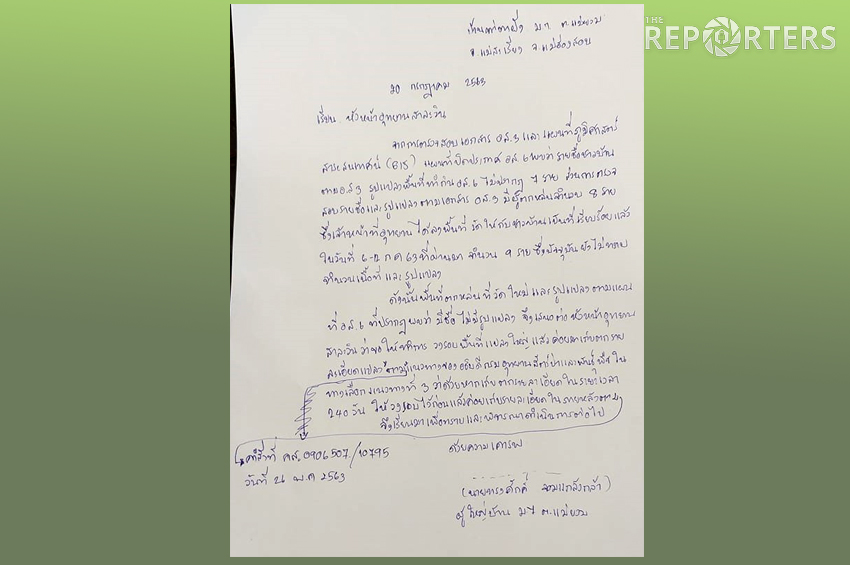 THE
REPORTERS
บ้านท่าตาฝั่ง ม.1 ต.แม่ยวม
อ.แม่สะเรียง จ.แม่ฮ่องสอน
20 กรกฎาคม 2563
เรียน หัวหน้าอุทยานสาละวิน
จากการตรวจสอบเอกสาร อส.3 และแผนที่ภูมิศาสตร์
สารสนเทศน์ (GIS) แผนที่ปิดประกาศ อส.6 พบว่า รายชื่อชาวบ้าน
ตาม อส.3 รูปแปลงพื้นที่ทำกิน อส.6 ไม่ปรากฏ 7 ราย ส่วนการตรวจ
สอบรายชื่อและรูปแปลงตามเอกสาร อส.3 มีผู้ตกหล่นจำนวน 8 ราย
ซึ่งเจ้าหน้าที่อุทยานได้ลงพื้นที่ วัดให้กับชาวบ้านเป็นที่เรียบร้อยแล้ว
ในวันที่ ก.ค 63 ที่ผ่านมา จำนวน 9 ราย ซึ่งปัจจุบันยังไม่ทราบ
จำนวนเนื้อที่ และ รูปแปลง
ดังนั้นพื้นที่ตกหล่น ที่วัดใหม่และรูปแปลงตามแผน
ที่ อส.6 ที่ปรากฏพบว่า มีชื่อ ไม่มีรูปแปลง จึงเสนอต่อหัวหน้าอุทยาน
สาละวิน ว่าขอให้ทำการ วงรอบพื้นที่แปลงใหญ่ แล้วค่อยมาเก็บตกราย
ละเอียดแปลง ตามแนวทางของอธิบดีกรมอุทยานสัตว์ป่าและพันธุ์พืช ใน
ทางเลือก แนวทางที่ 3 ว่าด้วยหากเก็บตกรายละเอียดในระยะเวลา
240 วัน ให้วงรอบไว้ก่อนแล้วค่อยเก็บรายละเอียดในรายหลังตาม
จึงเรียนมาเพื่อทราบและพิจารณาดำเนินการต่อไป
คำสั่งที่ ทส.0906507/10795
ด้วยความเคารพ
วันที่ 26 พ.ค 2563
ผู้ใหญ่บ้าน ม.1 ต.แม่ยวม